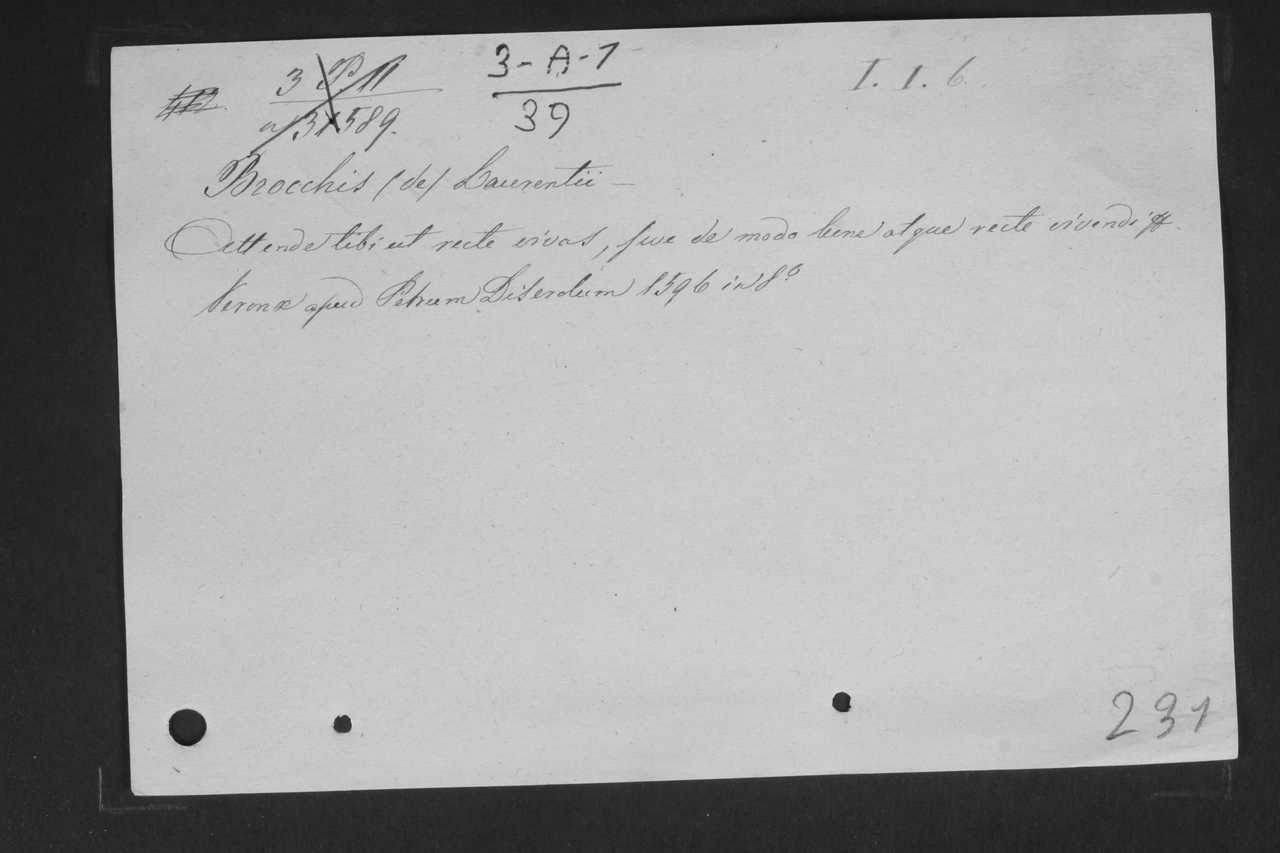 3 P 11 3-A-1 I. 1. 6.
a/31589. 39
Brocchis (de) Laurentii —
Attende tibi ut recte vivas, sive de modo bene atque recte vivendi
Veronæ apud Petrum Diserolum 1596 in 8º
231